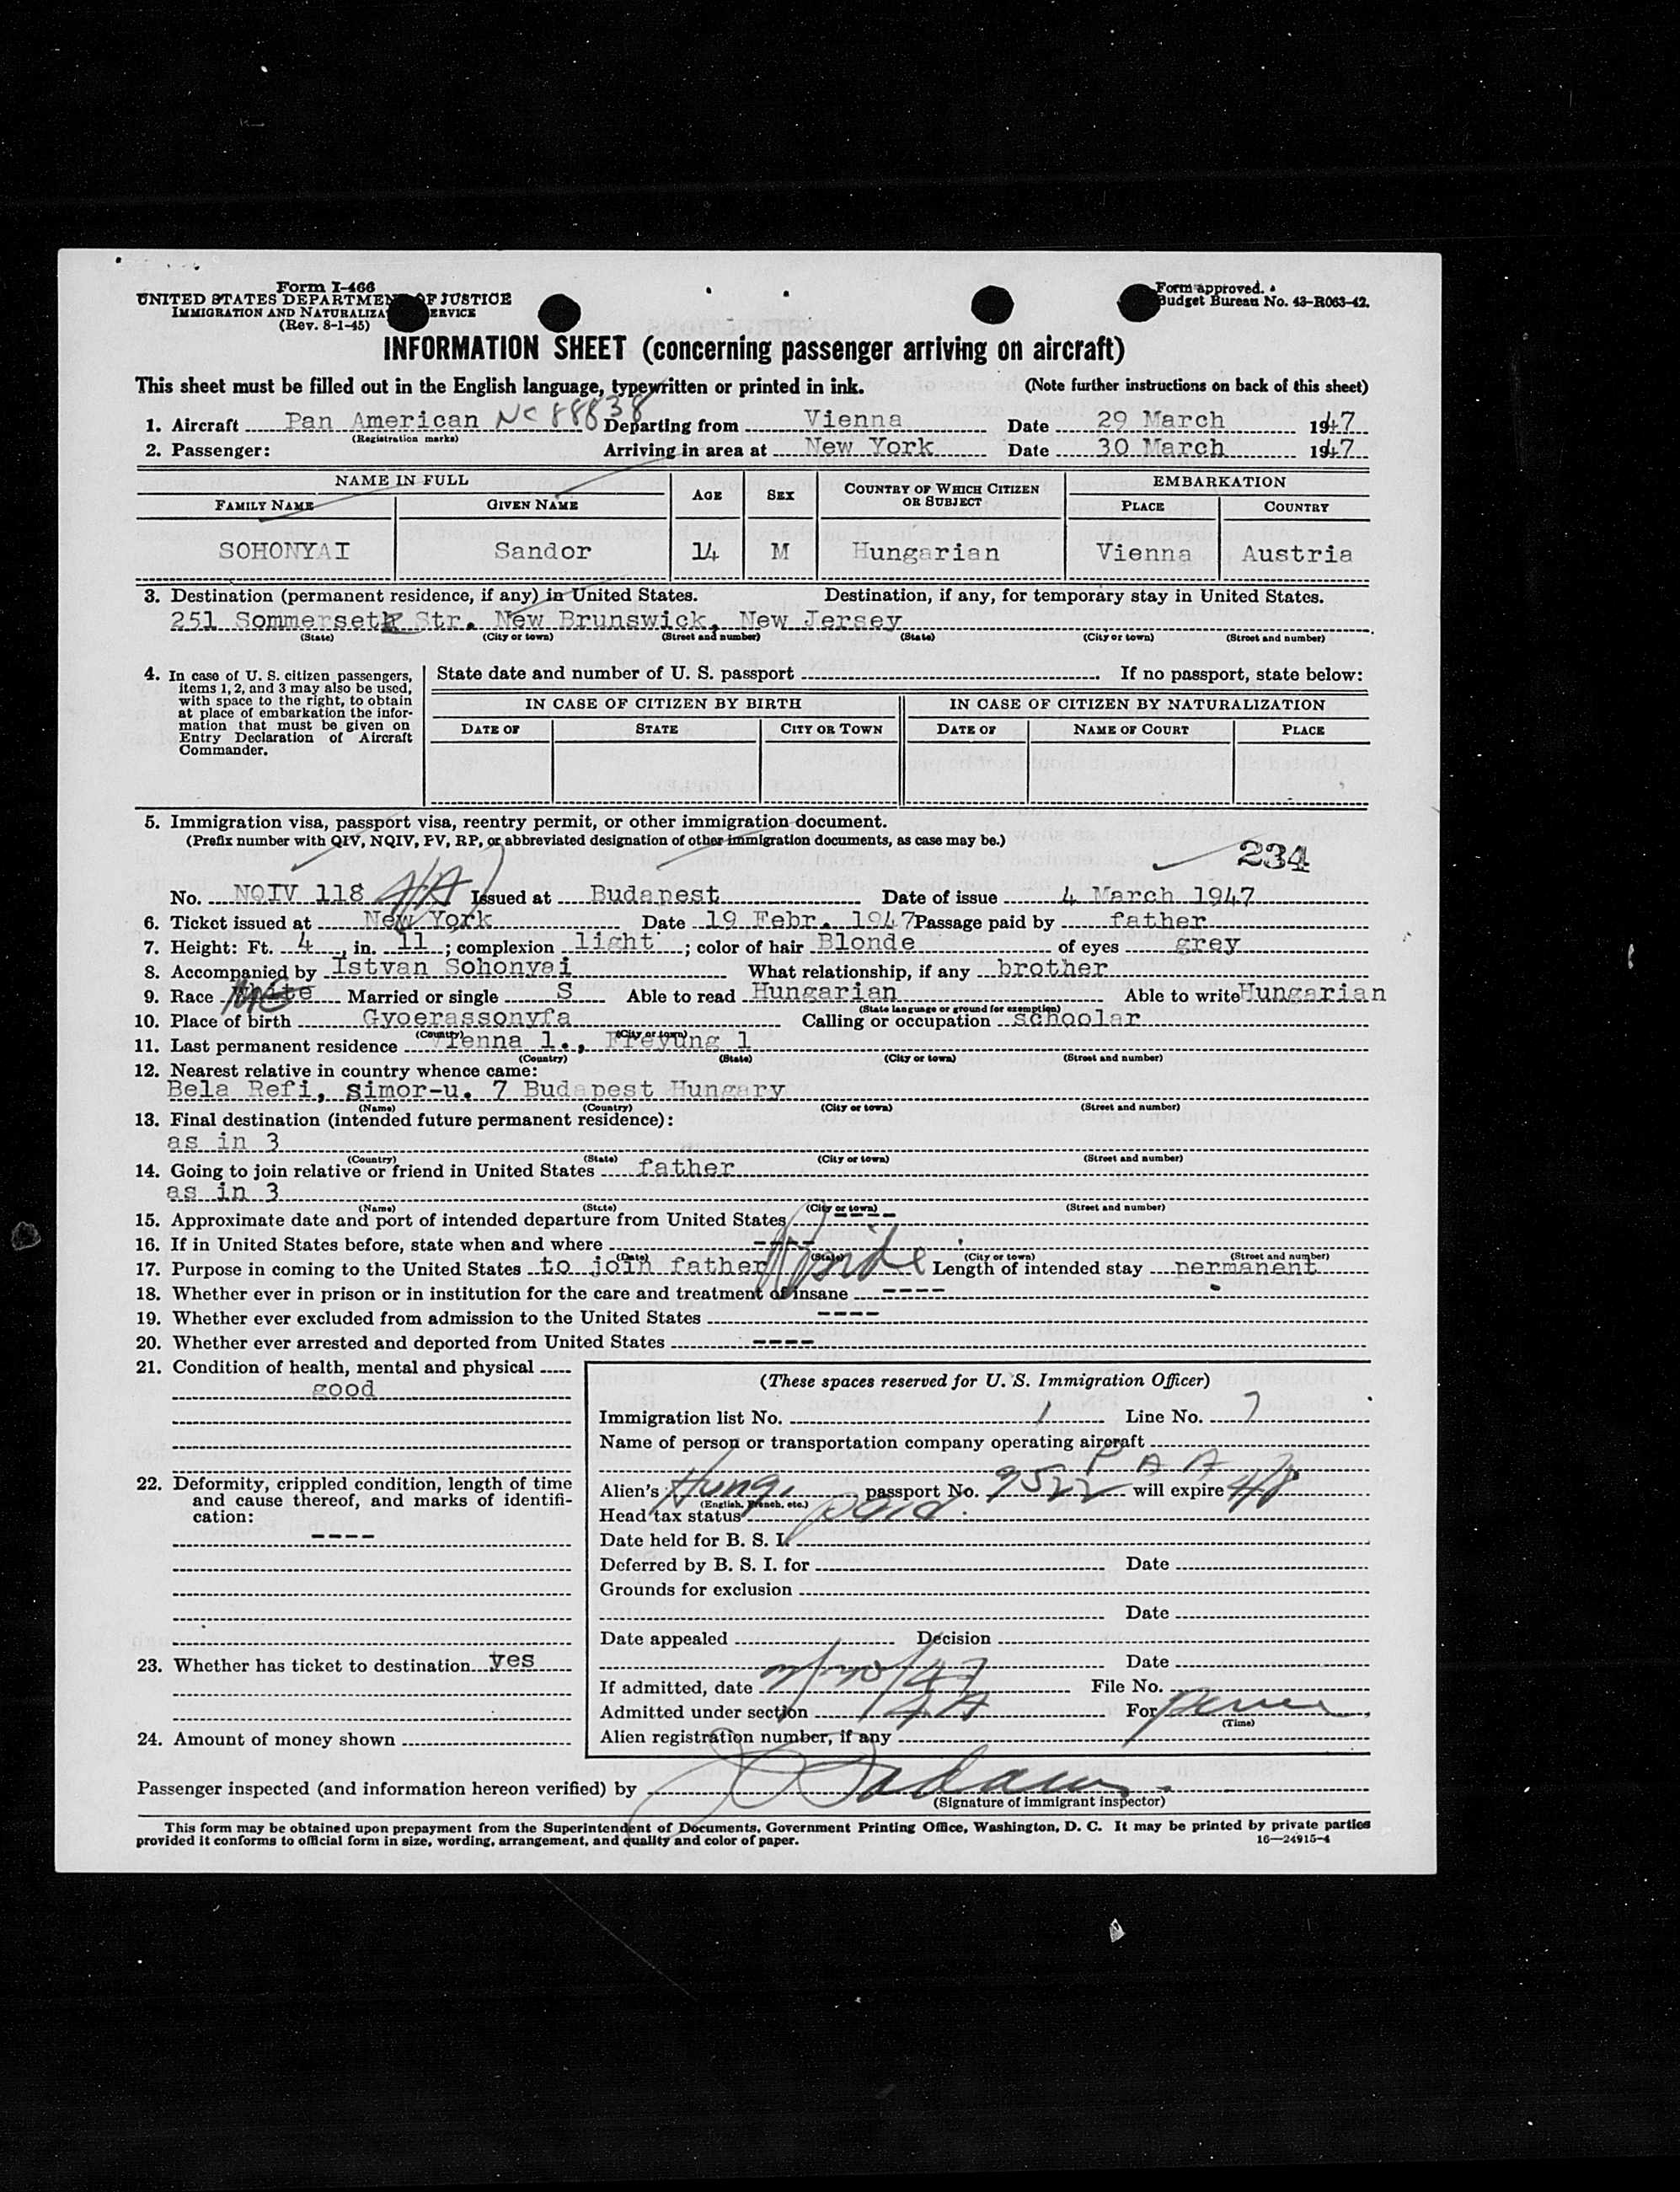 Form I-466
UNITED STATES DEPARTMENT OF JUSTICE
IMMIGRATION AND NATURALIZA ERVICE
(Rev. 8-1-45)
Form approved.
Budget Bureau No. 43-R063-42.
INFORMATION SHEET (concerning passenger arriving on aircraft)
This sheet must be filled out in the English language, typewritten or printed in ink. (Note further instructions on back of this sheet)
1. Aircraft Pan American NC 88838 Departing from Vienna Date 29 March 1947
(Registration marks)
2. Passenger: Arriving in area at New York Date 30 March 1947
NAME IN FULL AGE SEX COUNTRY OF WHICH CITIZEN OR SUBJECT EMBARKATION
FAMILY NAME GIVEN NAME PLACE COUNTRY
SOHONYAI Sandor 14 M Hungarian Vienna Austria
3. Destination (permanent residence, if any) in United States. Destination, if any, for temporary stay in United States.
251 Sommerset Str. New Brunswick, New Jersey
(State) (City or town) (Street and number) (State) (City or town) (Street and number)
4. In case of U. S. citizen passengers, items 1, 2, and 3 may also be used, with space to the right, to obtain at place of embarkation the information that must be given on Entry Declaration of Aircraft Commander.
State date and number of U. S. passport . If no passport, state below:
IN CASE OF CITIZEN BY BIRTH IN CASE OF CITIZEN BY NATURALIZATION
DATE OF STATE CITY OR TOWN DATE OF NAME OF COURT PLACE
5. Immigration visa, passport visa, reentry permit, or other immigration document.
(Prefix number with QIV, NQIV, PV, RP, or abbreviated designation of other immigration documents, as case may be.)
234
No. NQIV 118 Issued at Budapest Date of issue 4 March 1947
6. Ticket issued at New York Date 19 Febr. 1947 Passage paid by father
7. Height: Ft. 4, in. 11; complexion light; color of hair Blonde of eyes grey
8. Accompanied by Istvan Sohonyai What relationship, if any brother
9. Race White Married or single S Able to read Hungarian Able to write Hungarian
(State language or ground for exemption)
10. Place of birth Gyoerassonyfa Calling or occupation schoolar
(Country) (City or town)
11. Last permanent residence Vienna 1., Freyung 1
(Country) (State) (City or town) (Street and number)
12. Nearest relative in country whence came:
Bela Refi, simor-u. 7 Budapest Hungary
(Name) (Country) (City or town) (Street and number)
13. Final destination (intended future permanent residence):
as in 3
(Country) (State) (City or town) (Street and number)
14. Going to join relative or friend in United States father
as in 3
(Name) (State) (City or town) (Street and number)
15. Approximate date and port of intended departure from United States ----
16. If in United States before, state when and where ----
(Date) (State) (City or town) (Street and number)
17. Purpose in coming to the United States to join father Reside Length of intended stay permanent
18. Whether ever in prison or in institution for the care and treatment of insane ----
19. Whether ever excluded from admission to the United States ----
20. Whether ever arrested and deported from United States ----
21. Condition of health, mental and physical
good
22. Deformity, crippled condition, length of time and cause thereof, and marks of identification:
----
23. Whether has ticket to destination yes
24. Amount of money shown
(These spaces reserved for U. S. Immigration Officer)
Immigration list No. 1 Line No. 7
Name of person or transportation company operating aircraft
P A A
Alien's Hung. passport No. 9522 will expire 48
(English, French, etc.)
Head tax status paid
Date held for B. S. I.
Deferred by B. S. I. for Date
Grounds for exclusion
Date
Date appealed Decision
Date
If admitted, date 3/30/47 File No.
Admitted under section 4A For perm
(Time)
Alien registration number, if any
Passenger inspected (and information hereon verified) by
(Signature of immigrant inspector)
This form may be obtained upon prepayment from the Superintendent of Documents, Government Printing Office, Washington, D. C. It may be printed by private parties
provided it conforms to official form in size, wording, arrangement, and quality and color of paper. 16—24915-4